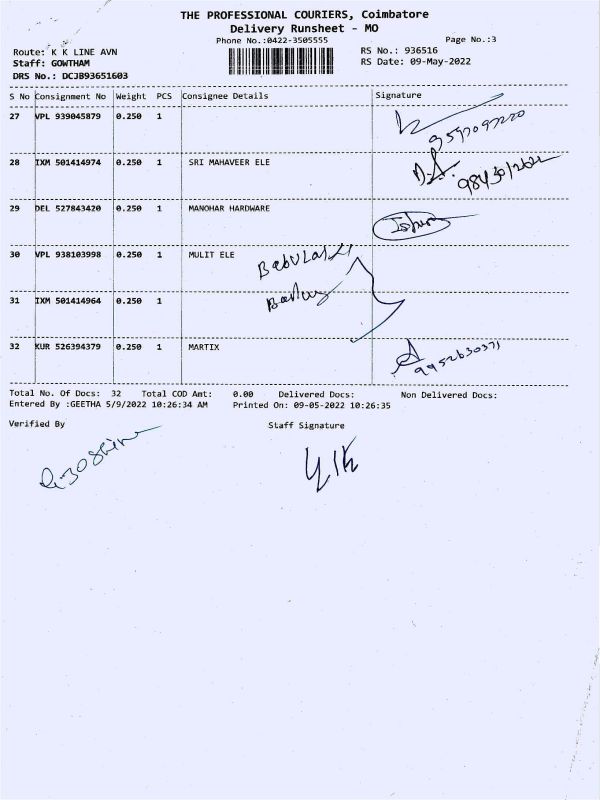 THE PROFESSIONAL COURIERS, Coimbatore
Delivery Runsheet - MO
Phone No.:0422-3505555 Page No.:3
Route: K K LINE AVN RS No.: 936516
Staff: GOWTHAM RS Date: 09-May-2022
DRS No.: DCJB93651603
S No Consignment No Weight PCS Consignee Details Signature
27 VPL 939045879 0.250 1
28 IXM 501414974 0.250 1 SRI MAHAVEER ELE
29 DEL 527843420 0.250 1 MANOHAR HARDWARE
30 VPL 938103998 0.250 1 MULIT ELE
31 IXM 501414964 0.250 1
32 KUR 526394379 0.250 1 MARTIX
9952630371
Total No. Of Docs: 32 Total COD Amt: 0.00 Delivered Docs: Non Delivered Docs:
Entered By :GEETHA 5/9/2022 10:26:34 AM Printed On: 09-05-2022 10:26:35
Verified By Staff Signature